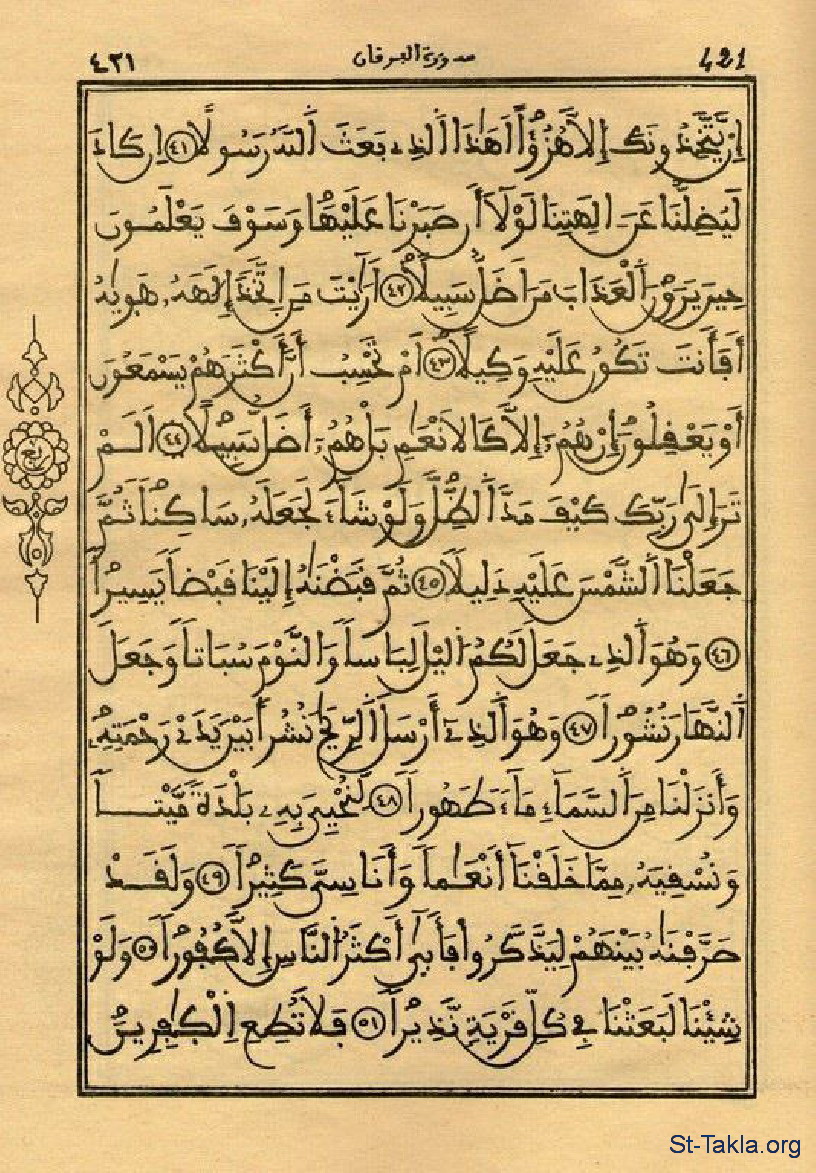 421 سورة الفرقان ٤٢١
إِنْ يَّتَّخِذُونَكَ إِلَّا هُزُؤًا اَهَٰذَا اَلذِے بَعَثَ اَللَّهُ رَسُولًا ٤١ إِن كَادَ
لَيُضِلُّنَا عَنَ اٰلِهَتِنَا لَوْلَآ أَن صَبَرْنَا عَلَيْهَا وَسَوْفَ يَعْلَمُونَ
حِينَ يَرَوْنَ اَلْعَذَابَ مَنَ اَضَلُّ سَبِيلًا ٤٢ اَرَٰيْتَ مَنِ اِتَّخَذَ إِلَٰهَهُۥ هَوٜيٰهُ
أَفَأَنتَ تَكُونُ عَلَيْهِ وَكِيلًا ٤٣ أَمْ تَحْسِبُ أَنَّ أَكْثَرَهُمْ يَسْمَعُونَ
أَوْ يَعْقِلُونَ إِنْ هُمُۥٓ إِلَّا كَالَانْعَٰمِ بَلْ هُمُۥٓ أَضَلُّ سَبِيلًا ٤٤ اَلَمْ
تَرَ إِلَىٰ رَبِّكَ كَيْفَ مَدَّ اَلظِّلَّ وَلَوْ شَآءَ لَجَعَلَهُۥ سَاكِنًا ثُمَّ
جَعَلْنَا اَلشَّمْسَ عَلَيْهِ دَلِيلًا ٤٥ ثُمَّ قَبَضْنَٰهُ إِلَيْنَا قَبْضًا يَسِيرًا
٤٦ وَهُوَ اَلذِے جَعَلَ لَكُمُ اَليْلَ لِبَاسًا وَالنَّوْمَ سُبَاتًا وَجَعَلَ
اَلنَّهَارَ نُشُورًا ٤٧ وَهُوَ اَلذِےٓ أَرْسَلَ اَلرِّيَٰحَ نُشُرًا بَيْنَ يَدَےْ رَحْمَتِهِۦ
وَأَنزَلْنَا مِنَ اَلسَّمَآءِ مَآءً طَهُورًا ٤٨ لِّنُحْۦِيَ بِهِۦ بَلْدَةً مَّيْتًا
وَنُسْقِيَهُۥ مِمَّا خَلَقْنَآ أَنْعَٰمًا وَأَنَاسِيَّ كَثِيرًا ٤٩ وَلَقَدْ
صَرَّفْنَٰهُ بَيْنَهُمْ لِيَذَّكَّرُوا فَأَبَىٰٓ أَكْثَرُ النَّاسِ إِلَّا كُفُورًا ٥٠ وَلَوْ
شِئْنَا لَبَعَثْنَا فِے كُلِّ قَرْيَةٍ نَّذِيرًا ٥١ فَلَا تُطِعِ اِلْكَٰفِرِينَ
ربع
St-Takla.org